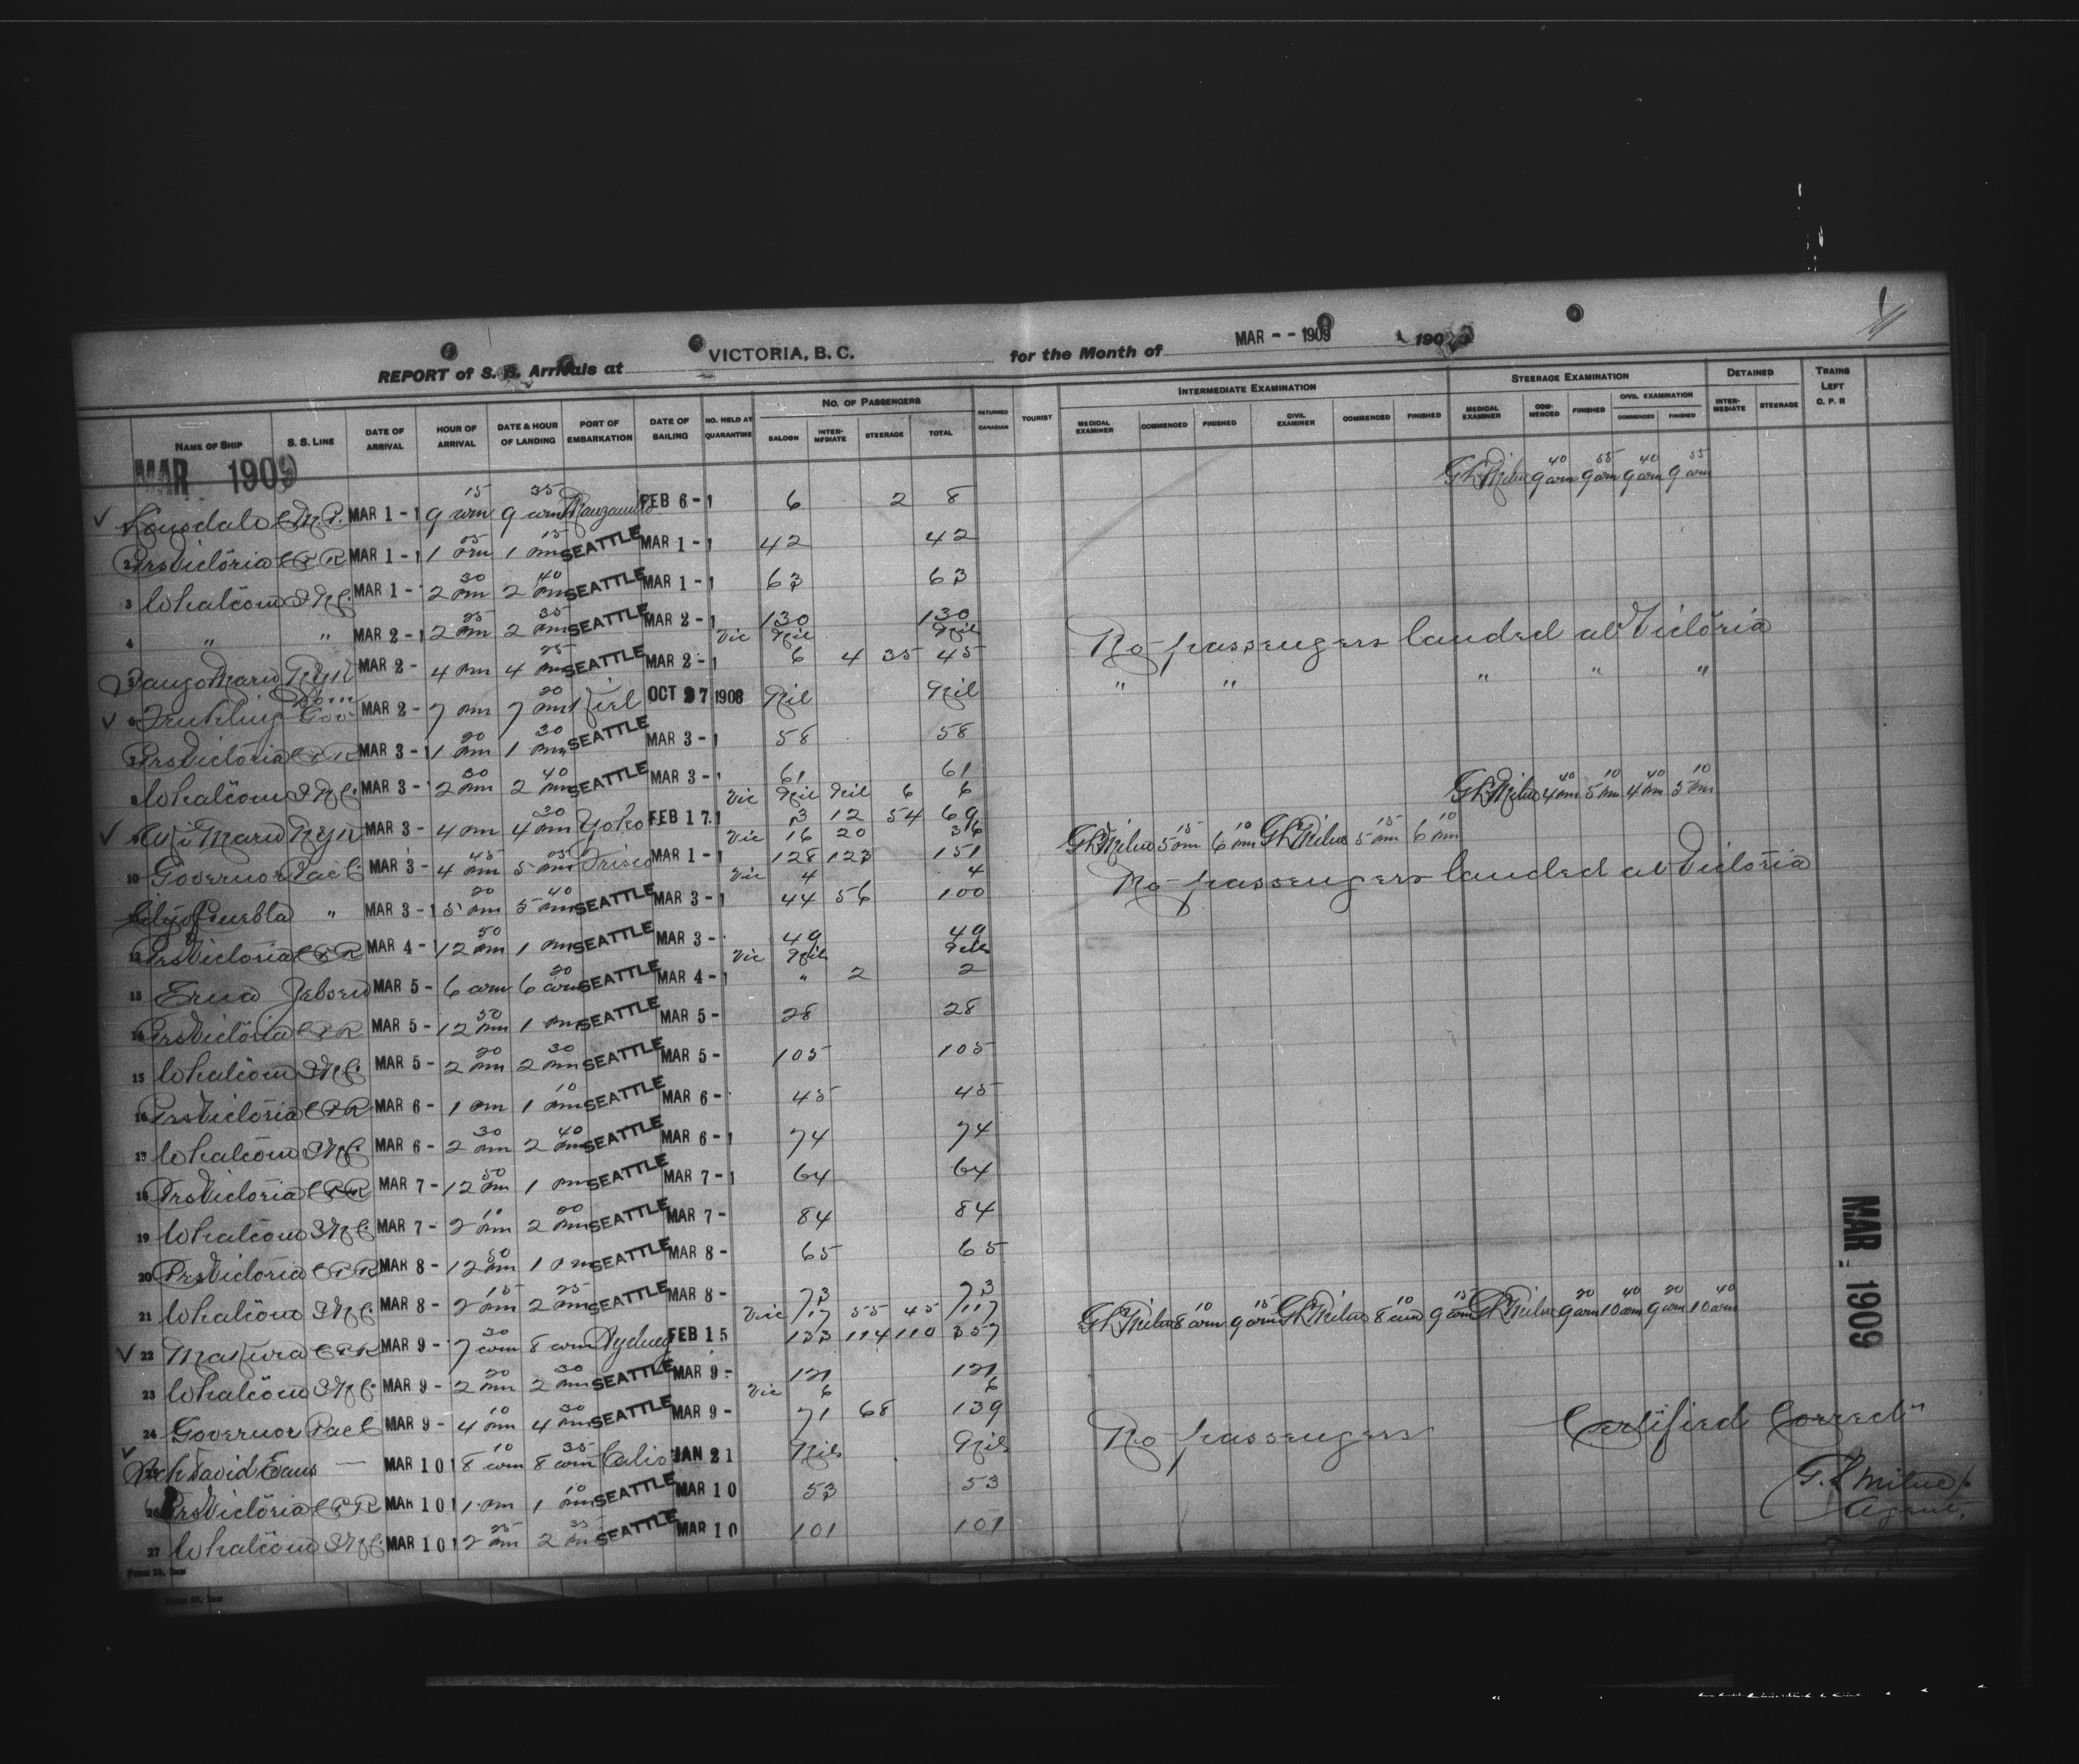 REPORT of S. S. Arrivals at VICTORIA, B. C. for the Month of MAR -- 1909 190
NAME OF SHIP S. S. LINE DATE OF ARRIVAL HOUR OF ARRIVAL DATE & HOUR OF LANDING PORT OF EMBARKATION DATE OF SAILING NO. HELD AT QUARANTINE NO. OF PASSENGERS SALOON INTER-MEDIATE STEERAGE TOTAL RETURNED CANADIAN TOURIST INTERMEDIATE EXAMINATION MEDICAL EXAMINER COMMENCED FINISHED CIVIL EXAMINER COMMENCED FINISHED STEERAGE EXAMINATION MEDICAL EXAMINER COM-MENCED FINISHED CIVIL EXAMINATION COMMENCED FINISHED DETAINED INTER-MEDIATE STEERAGE TRAINS LEFT C. P. R
MAR 1909
Lonsdale C.M.P. MAR 1-1 9 15 am 9 35 am Manzanillo FEB 6-1 6 2 8 GL Milne 9 40 am 9 55 am 9 40 am 9 55 am
2 Prs Victoria CPR MAR 1-1 1 05 pm 1 15 pm SEATTLE MAR 1-1 42 42
3 Whatcom INC. MAR 1- 2 30 pm 2 40 pm SEATTLE MAR 1-1 63 63
4 " " MAR 2-1 2 25 pm 2 35 pm SEATTLE MAR 2-1 130 130
Vic Nil Nil No passengers landed at Victoria
Maru NYK MAR 2- 4 pm 4 25 pm SEATTLE MAR 2-1 6 4 35 45
6 MAR 2- 7 pm 7 20 pm Kiel OCT 27 1908 Nil Nil " " " " "
7 Prs Victoria CPR MAR 3-1 1 20 pm 1 30 pm SEATTLE MAR 3-1 58 58
8 Whatcom INC. MAR 3- 2 30 pm 2 40 pm SEATTLE MAR 3-1 61 61
Vic Nil Nil 6 6 GL Milne 4 40 pm 5 10 pm 4 40 pm 5 10 pm
Maru NYK MAR 3- 4 pm 4 30 pm Yoko FEB 17.1 3 12 54 69
Vic 16 20 36 GL Milne 5 15 pm 6 10 pm GL Milne 5 15 pm 6 10 pm
10 Governor Pac C MAR 3- 4 45 pm 5 05 pm Frisco MAR 1-1 128 123 151
Vic 4 4 No passengers landed at Victoria
City of Puebla " MAR 3-1 5 20 pm 5 40 pm SEATTLE MAR 3-1 44 56 100
12 Prs Victoria CPR MAR 4- 12 50 pm 1 pm SEATTLE MAR 3- 49 49
Vic Nil Nil
13 Erna Jebsen MAR 5- 6 am 6 20 am SEATTLE MAR 4-1 " 2 2
14 Prs Victoria CPR MAR 5- 12 50 pm 1 pm SEATTLE MAR 5- 28 28
15 Whatcom INC. MAR 5- 2 20 pm 2 30 pm SEATTLE MAR 5- 105 105
16 Prs Victoria CPR MAR 6- 1 pm 1 10 pm SEATTLE MAR 6- 45 45
17 Whatcom INC. MAR 6- 2 30 pm 2 40 pm SEATTLE MAR 6-1 74 74
18 Prs Victoria CPR MAR 7- 12 50 pm 1 pm SEATTLE MAR 7-1 64 64
19 Whatcom INC. MAR 7- 2 10 pm 2 20 pm SEATTLE MAR 7- 84 84
20 Prs Victoria CPR MAR 8- 12 50 pm 1 pm SEATTLE MAR 8- 65 65
21 Whatcom INC. MAR 8- 2 15 pm 2 25 pm SEATTLE MAR 8- 73 73
Vic 17 55 45 117 GL Milne 8 10 am 9 15 am GL Milne 8 10 am 9 15 am GL Milne 9 20 am 10 40 am 9 20 am 10 40 am
22 Makura CPR MAR 9- 7 30 am 8 am Sydney FEB 15 133 114 110 357
23 Whatcom INC. MAR 9- 2 20 pm 2 30 pm SEATTLE MAR 9- 121 121
Vic 6 6
24 Governor Pac C MAR 9- 4 10 pm 4 30 pm SEATTLE MAR 9- 71 68 139
Sch David Evans — MAR 10 8 10 am 8 35 am JAN 21 Nil Nil No passengers Certified Correct
26 Prs Victoria CPR MAR 10 1 pm 1 10 pm SEATTLE MAR 10 53 53
27 Whatcom INC. MAR 10 2 25 pm 2 35 pm SEATTLE MAR 10 101 101
G. L Milne
Agent.
MAR 1909